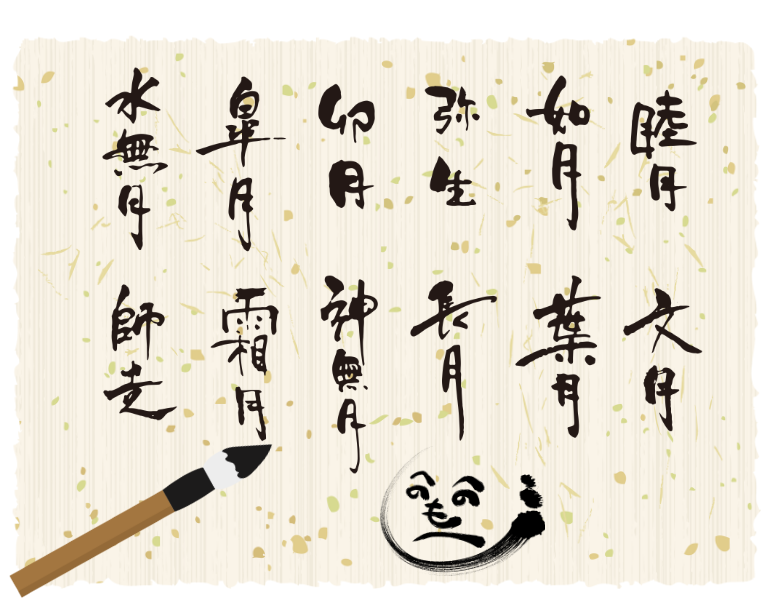 睦月
如月
弥生
卯月
皐月
水無月
文月
葉月
長月
神無月
霜月
師走
へのへのもへじ